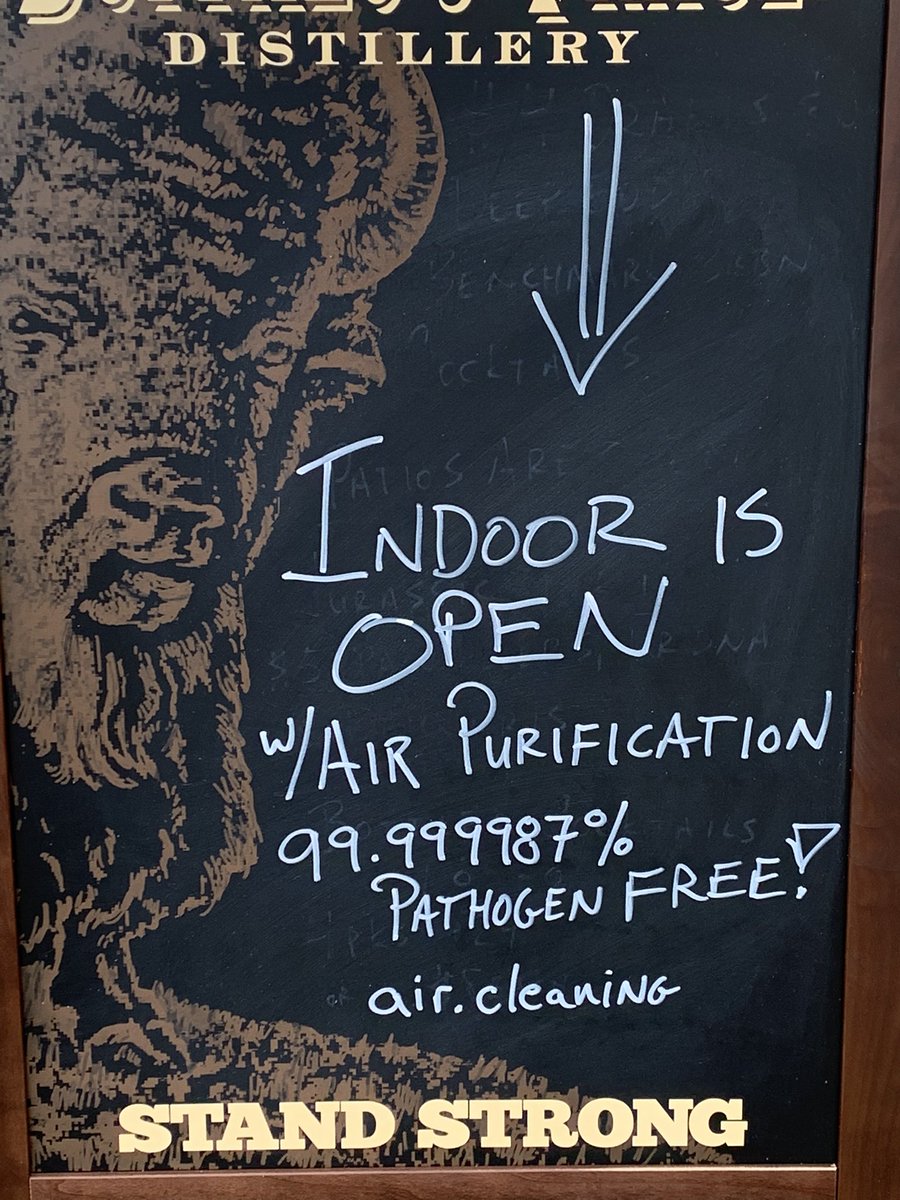 DISTILLERY
INDOOR IS
OPEN
W/AIR PURIFICATION
99.999987%
PATHOGEN FREE!
air.cleaning
STAND STRONG